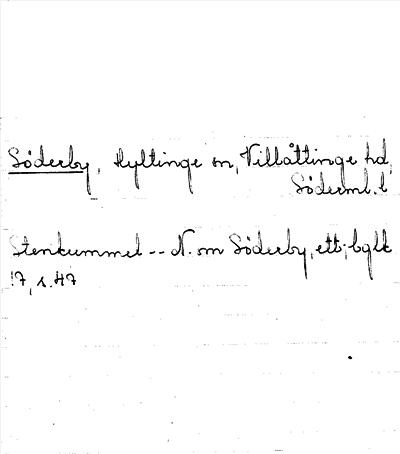 Söderby, Hyltinge sn, Villåttinge hd,
Söderml. l
Stenkummel -- N. om Söderby, ett; bglk
17, s. 47